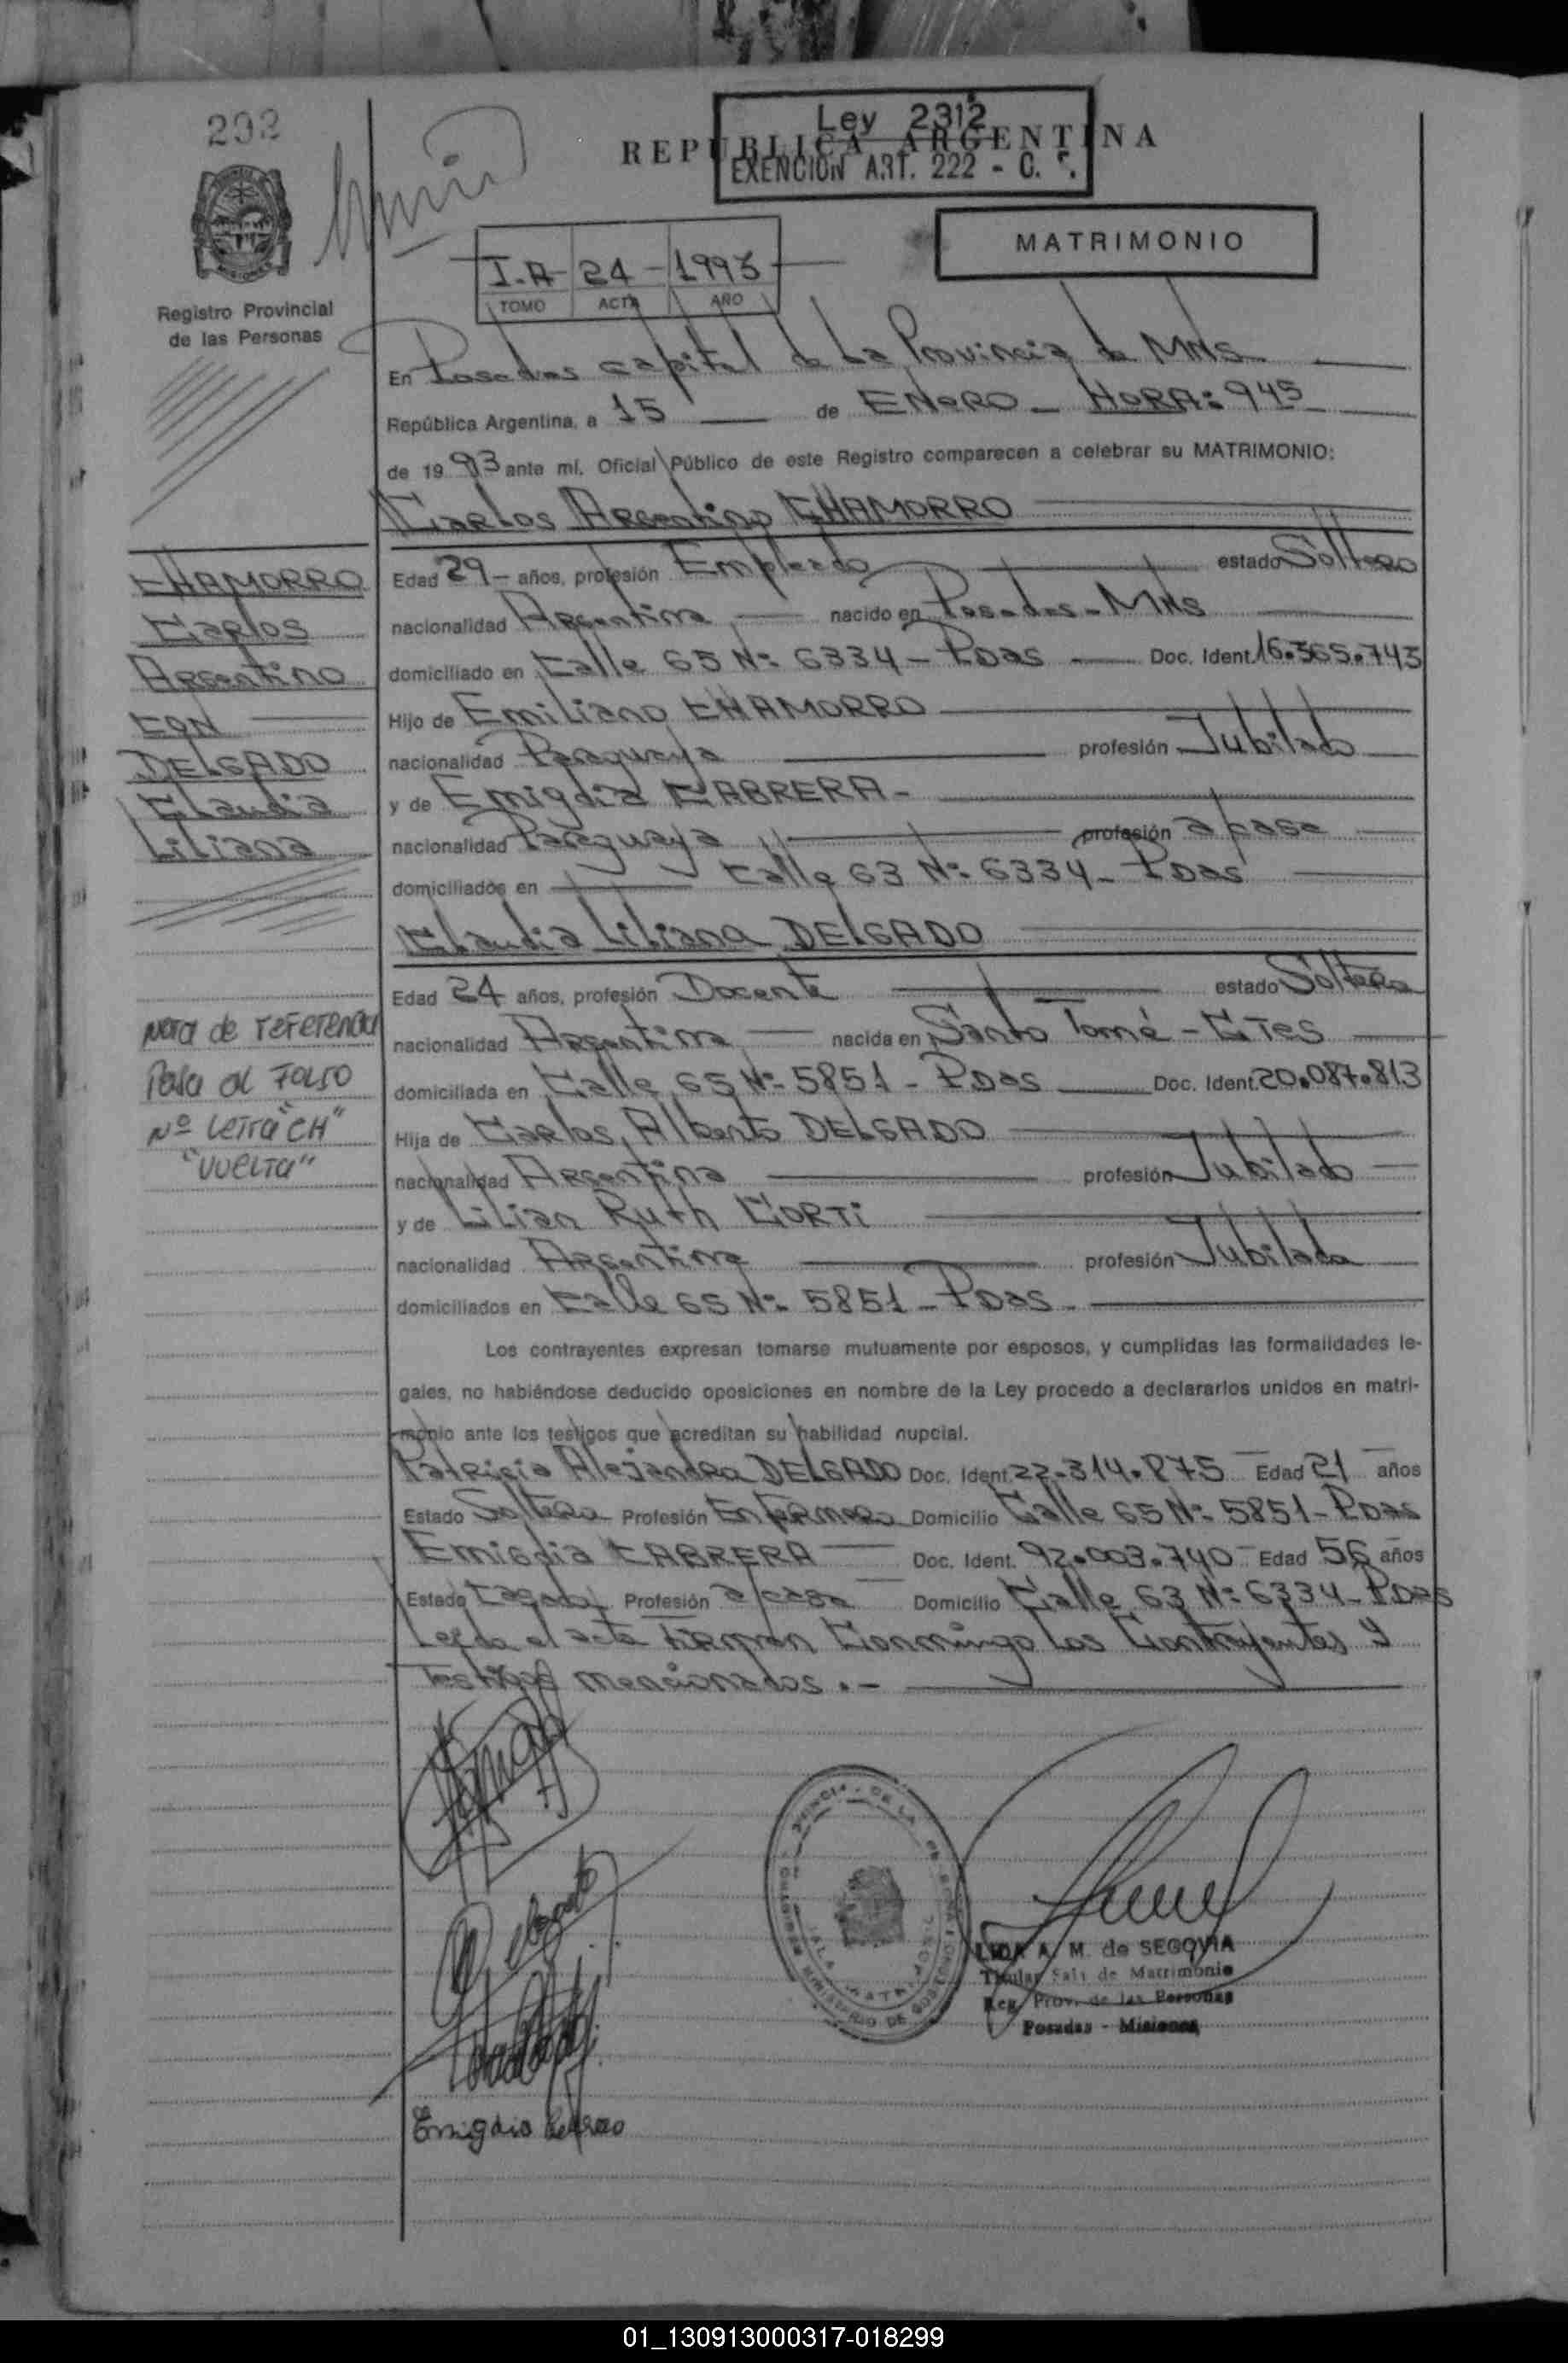 202
Ley 2312
REPUBLICA ARGENTINA
EXENCION ART. 222 - C.
MATRIMONIO
I-A 24 - 1993
TOMO ACTA AÑO
Registro Provincial
de las Personas
En Posadas capital de La Provincia de MNS
República Argentina, a 15 de ENERO - HORA: 945
de 1993 ante mí, Oficial Público de este Registro comparecen a celebrar su MATRIMONIO:
Carlos Argentino CHAMORRO
Edad 29 años, profesión Empleado estado Soltero
nacionalidad Argentina nacido en Posadas - MNS
domiciliado en Calle 65 Nº 6334 - Pdas Doc. Ident. 16.365.743
Hijo de Emiliano CHAMORRO
nacionalidad Paraguaya profesión Jubilado
y de Emigdia CABRERA -
nacionalidad Paraguaya profesión a/casa
domiciliados en Calle 63 Nº 6334 - Pdas
Claudia Liliana DELGADO
Edad 24 años, profesión Docente estado Soltera
nacionalidad Argentina nacida en Santo Tomé - CTES
domiciliada en Calle 65 Nº 5851 - Pdas Doc. Ident. 20.087.813
Hija de Carlos Alberto DELGADO
nacionalidad Argentina profesión Jubilado
y de Lilian Ruth CORTI
nacionalidad Argentina profesión Jubilada
domiciliados en Calle 65 Nº 5851 - Pdas -
Los contrayentes expresan tomarse mutuamente por esposos, y cumplidas las formalidades le-
gales, no habiéndose deducido oposiciones en nombre de la Ley procedo a declararlos unidos en matri-
monio ante los testigos que acreditan su habilidad nupcial.
Patricia Alejandra DELGADO Doc. Ident. 22.314.875 Edad 21 años
Estado Soltera Profesión Enfermera Domicilio Calle 65 Nº 5851 - Pdas
Emigdia CABRERA Doc. Ident. 92.003.740 Edad 56 años
Estado Casada Profesión a/casa Domicilio Calle 63 Nº 6334 - Pdas
Leída el acta Firman Conmingo Los Contrayentes y
Testigos mencionados . -
CHAMORRO
Carlos
Argentino
CON
DELGADO
Claudia
Liliana
Nota de referencia
Pasa al FOLIO
Nº Letra "CH"
"VUELTA"
LIDA A. M. de SEGOVIA
Titular Sala de Matrimonio
Reg. Prov. de las Personas
Posadas - Misiones
01_130913000317-018299